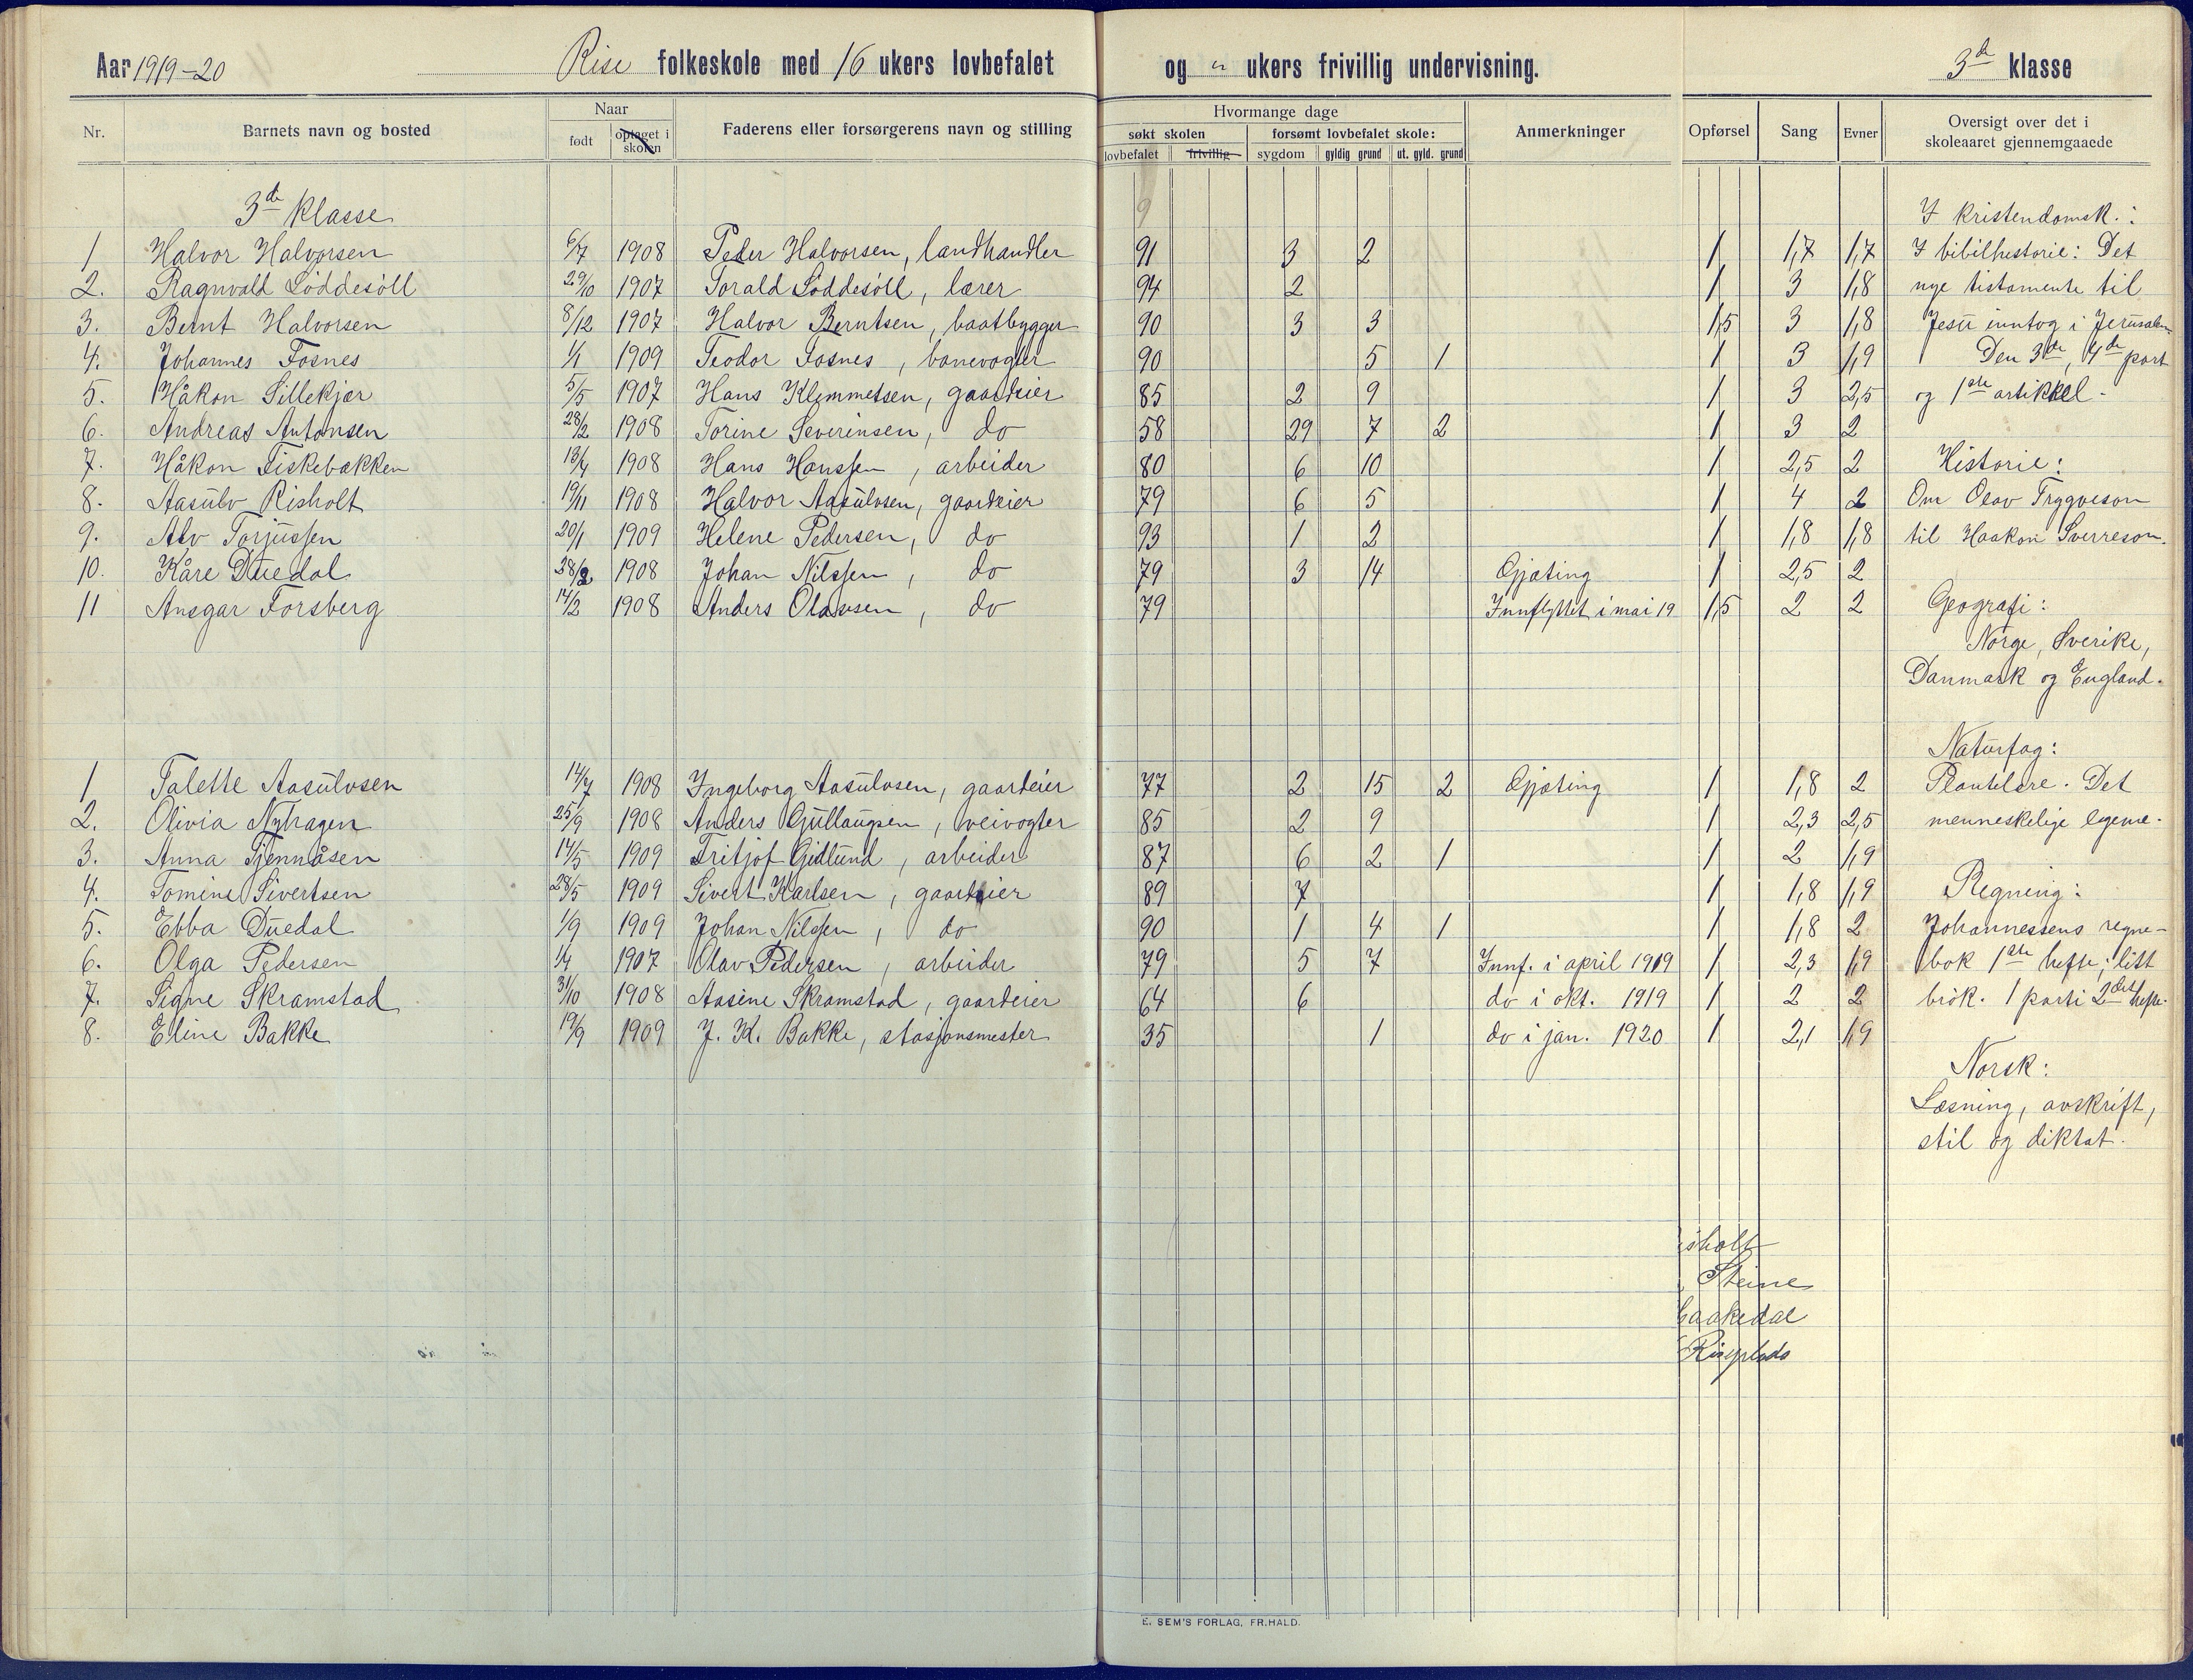 Aar 1919-20 Rise folkeskole med 16 ukers lovbefalet og " ukers frivillig undervisning. 3de klasse
Nr. Barnets navn og bosted Naar født optaget i skolen Faderens eller forsørgerens navn og stilling Hvormange dage søkt skolen lovbefalet frivillig forsømt lovbefalet skole: sygdom gyldig grund ut. gyld. grund Anmerkninger Opførsel Sang Evner Oversigt over det i skoleaaret gjennemgaaede
3de klasse I kristendomsk.:
1 Halvor Halvorsen 6/7 1908 Peder Halvorsen, landhandler 91 3 2 1 1,7 1,7 I bibilhistorie: Det
2. Ragnvald Løddesøll 29/10 1907 Torald Løddesøll, lærer 94 2 1 3 1,8 nye tistamente til
3. Bernt Halvorsen 8/12 1907 Halvor Berntsen, baatbygger 90 3 3 1,5 3 1,8 Jesu inntog i Jerusalem
4. Johannes Fosnes 1/1 1909 Teodor Fosnes, banevogter 90 5 1 1 3 1,9 Den 3de, 4de part
5. Håkon Sillekjær 5/5 1907 Hans Klemmetsen, gaardeier 85 2 9 1 3 2,5 og 1ste artikkel.
6. Andreas Antonsen 28/2 1908 Torine Severinsen, do 58 29 7 2 1 3 2
7. Håkon Fiskebækken 13/4 1908 Hans Hanssen, arbeider 80 6 10 1 2,5 2 Historie:
8. Aasulv Risholt 19/11 1908 Halvor Aasulvsen, gaardeier 79 6 5 1 4 2 Om Olav Trygveson
9. Alv Torjussen 20/1 1909 Helene Pedersen, do 93 1 2 1 1,8 1,8 til Haakon Sverreson.
10. Kåre Duedal 28/2 1908 Johan Nilssen, do 79 3 14 Gjæting 1 2,5 2
11 Ansgar Forsberg 14/2 1908 Anders Olavsen, do 79 Innflyttet i mai 19 1,5 2 2 Geografi:
Norge, Sverike,
Danmark og England.
Naturfag:
1 Talette Aasulvsen 14/7 1908 Ingeborg Aasulvsen, gaardeier 77 2 15 2 Gjæting 1 1,8 2 Plantelære. Det
2. Olivia Nyhagen 25/9 1908 Anders Gullaugsen, veivogter 85 2 9 1 2,3 2,5 menneskelige legeme.
3. Anna Tjennåsen 14/5 1909 Fritjof Gidlund, arbeider 87 6 2 1 1 2 1,9
4. Tomine Sivertsen 28/5 1909 Sivert Karlsen, gaardeier 89 7 1 1,8 1,9 Regning:
5. Ebba Duedal 1/9 1909 Johan Nilssen, do 90 1 4 1 1 1,8 2 Johannessens regne-
6. Olga Pedersen 1/4 1907 Olav Pedersen, arbeider 79 5 7 Innf. i april 1919 1 2,3 1,9 bok 1ste hefte; litt
7. Signe Skramstad 31/10 1908 Aasine Skramstad, gaardeier 64 6 do i okt. 1919 1 2 2 brøk. 1 parti 2det hefte.
8. Eline Bakke 19/9 1909 J. K. Bakke, stasjonsmester 35 1 do i jan. 1920 1 2,1 1,9
Norsk:
Læsning, avskrift,
stil og diktat.
isholt
Steine
Risplads
E. SEM'S FORLAG, FR.HALD.